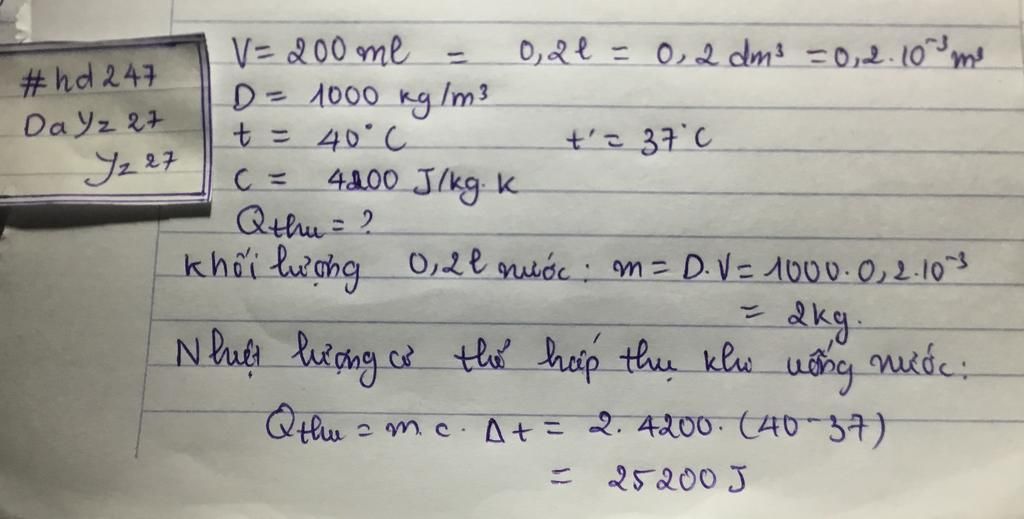 #hd247
DaYz27
Yz27
V = 200 ml = 0,2l = 0,2 dm³ = 0,2.10⁻³ m³
D = 1000 kg/m³
t = 40°C t' = 37°C
C = 4200 J/kg.k
Qthu = ?
Khối lượng 0,2l nước: m = D.V = 1000.0,2.10⁻³
= 2kg.
Nhiệt lượng cơ thể hấp thụ khi uống nước:
Qthu = m.c.Δt = 2.4200.(40-37)
= 25200 J